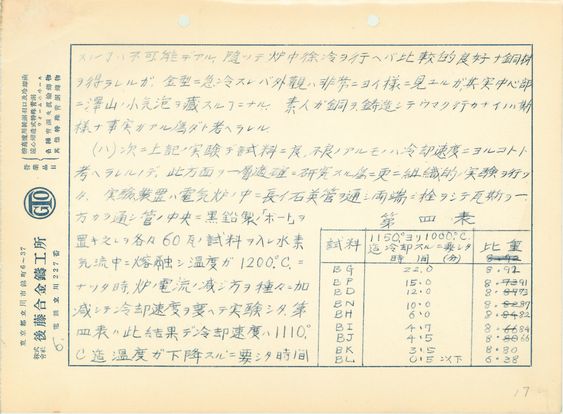 スル事ハ不可能デアル。随ッテ炉中徐冷ヲ行ヘバ比較的良好ナ銅材
ヲ得ラレルガ、金型ニ急冷スレバ外觀ハ非常ニヨイ様ニ見エルガ其実中心部
ニ澤山ノ小気泡ヲ藏スル事ニナル。素人ガ銅ヲ鋳造シテウマク行カナイハ斯
様ナ事実ガアル為ダト考ヘラレル。
(ハ) 次ニ上記ノ実験デ試料ニ良、不良ノアルモノハ冷却速度ニヨルコトト
考ヘラレルノデ、此方面ヲ一層追確ニ研究スル為ニ更ニ組織的ノ実験ヲ行ッ
タ。実験装置ハ電気炉ノ中ニ長イ石英管ヲ通シ両端ニ栓ヲシテ瓦斯ヲ一
方カラ通シ管ノ中央ニ黒鉛製「ボート」ヲ
置キ之レヲ各々60瓦ノ試料ヲ入レ水素
気流中ニ熔融シ温度ガ1200℃ニ
ナッタ時炉ノ電流ノ減ジ方ヲ種々ニ加
減シテ冷却速度ヲ変ヘテ実験シタ。第
四表ハ此結果デ冷却速度ハ1110°
C迄温度ガ下降スルニ要シタ時間
第四表
試料 1150°ヨリ1000℃迄冷却スルニ要シタ時間(分) 比重
BG 22.0 8.92
BF 15.0 8.91
BD 12.0 8.73
BN 10.0 8.87
BH 6.0 8.82
BI 4.7 8.84
BJ 4.5 8.66
BK 3.5 8.30
BL 0.5以下 6.38
營業品目
各種青銅眞鍮鋳物
其他特殊青銅鋳物
GIO
株式会社 後藤合金鑄工所
東京都立川市錦町6~37
電話立川222番
17